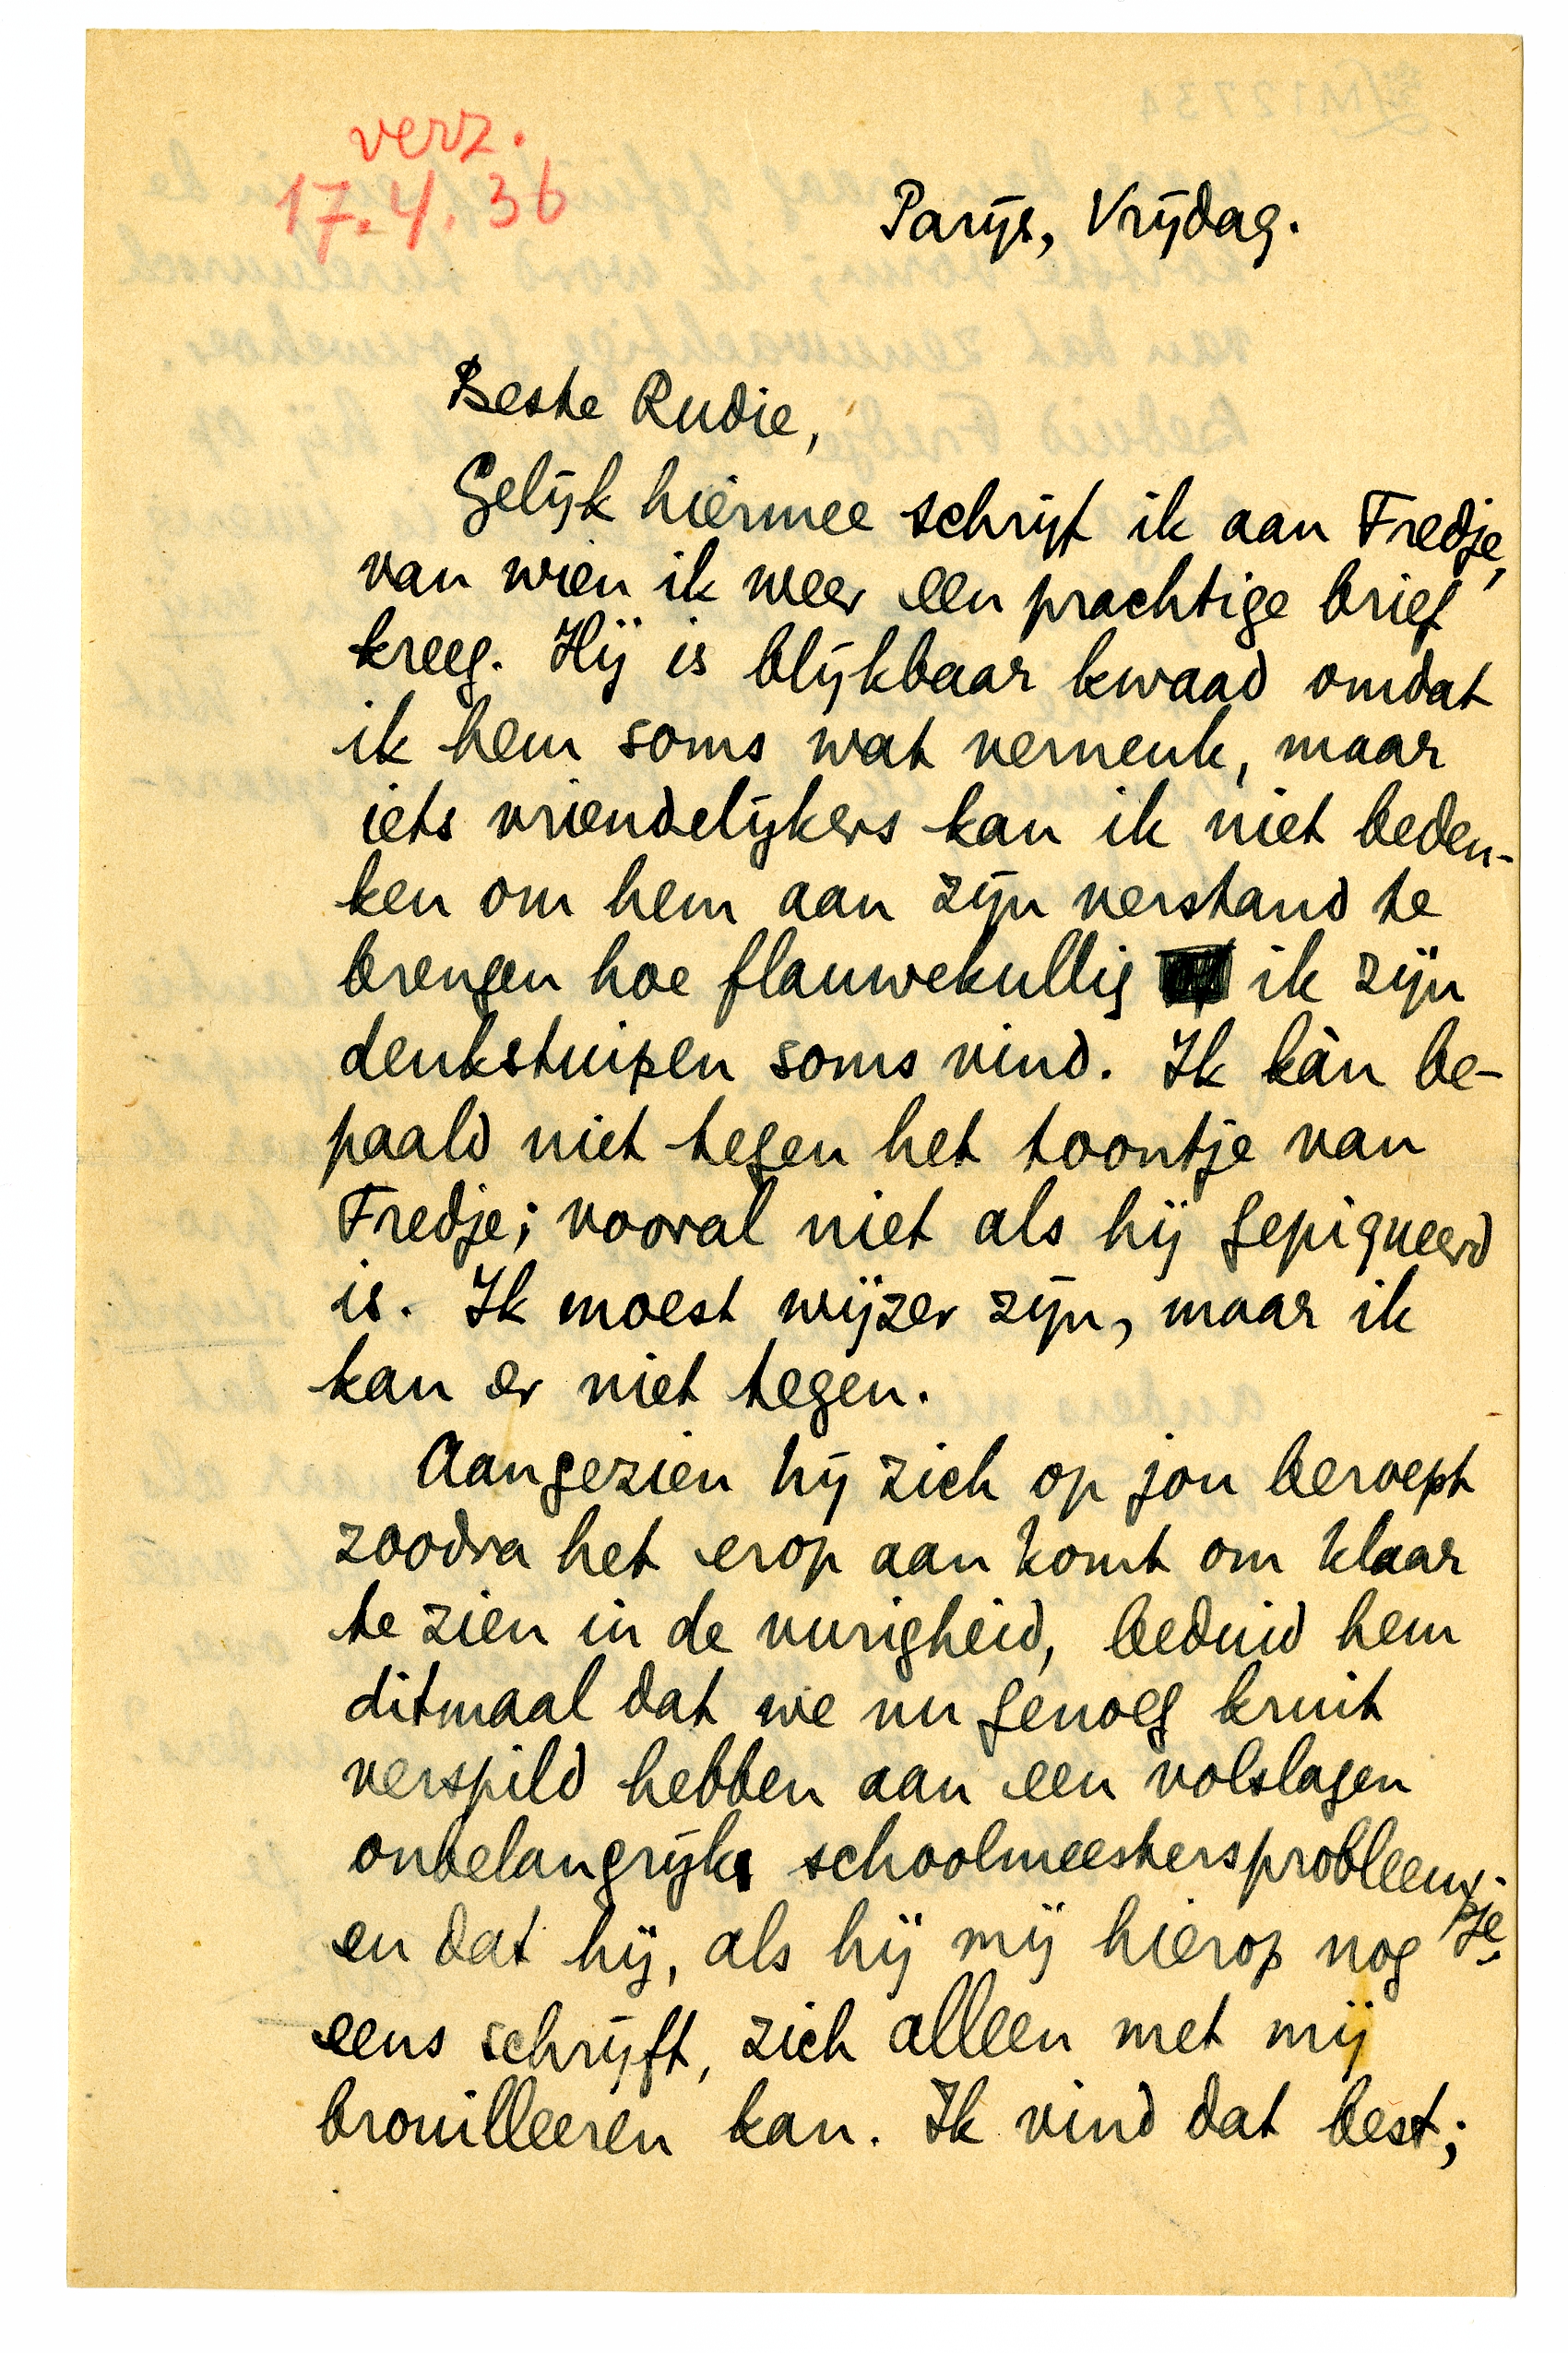 verz.
17.4.36
Parijs, Vrijdag.
Beste Rudie,
Gelijk hiermee schrijf ik aan Fredje,
van wien ik weer een prachtige brief
kreeg. Hij is blijkbaar kwaad omdat
ik hem soms wat verneuk, maar
iets vriendelijkers kan ik niet beden-
ken om hem aan zijn verstand te
brengen hoe flauwekullig ik zijn
denkstuipen soms vind. Ik kàn be-
paald niet tegen het toontje van
Fredje; vooral niet als hij gepiqueerd
is. Ik moest wijzer zijn, maar ik
kan er niet tegen.
Aangezien hij zich op jou beroept
zoodra het erop aan komt om klaar
te zien in de vurigheid, beduid hem
ditmaal dat we nu genoeg kruit
verspild hebben aan een volslagen
onbelangrijk schoolmeestersprobleem-
pje
en dat hij, als hij mij hierop nog
eens schrijft, zich alleen met mij
brouilleeren kan. Ik vind dat best;